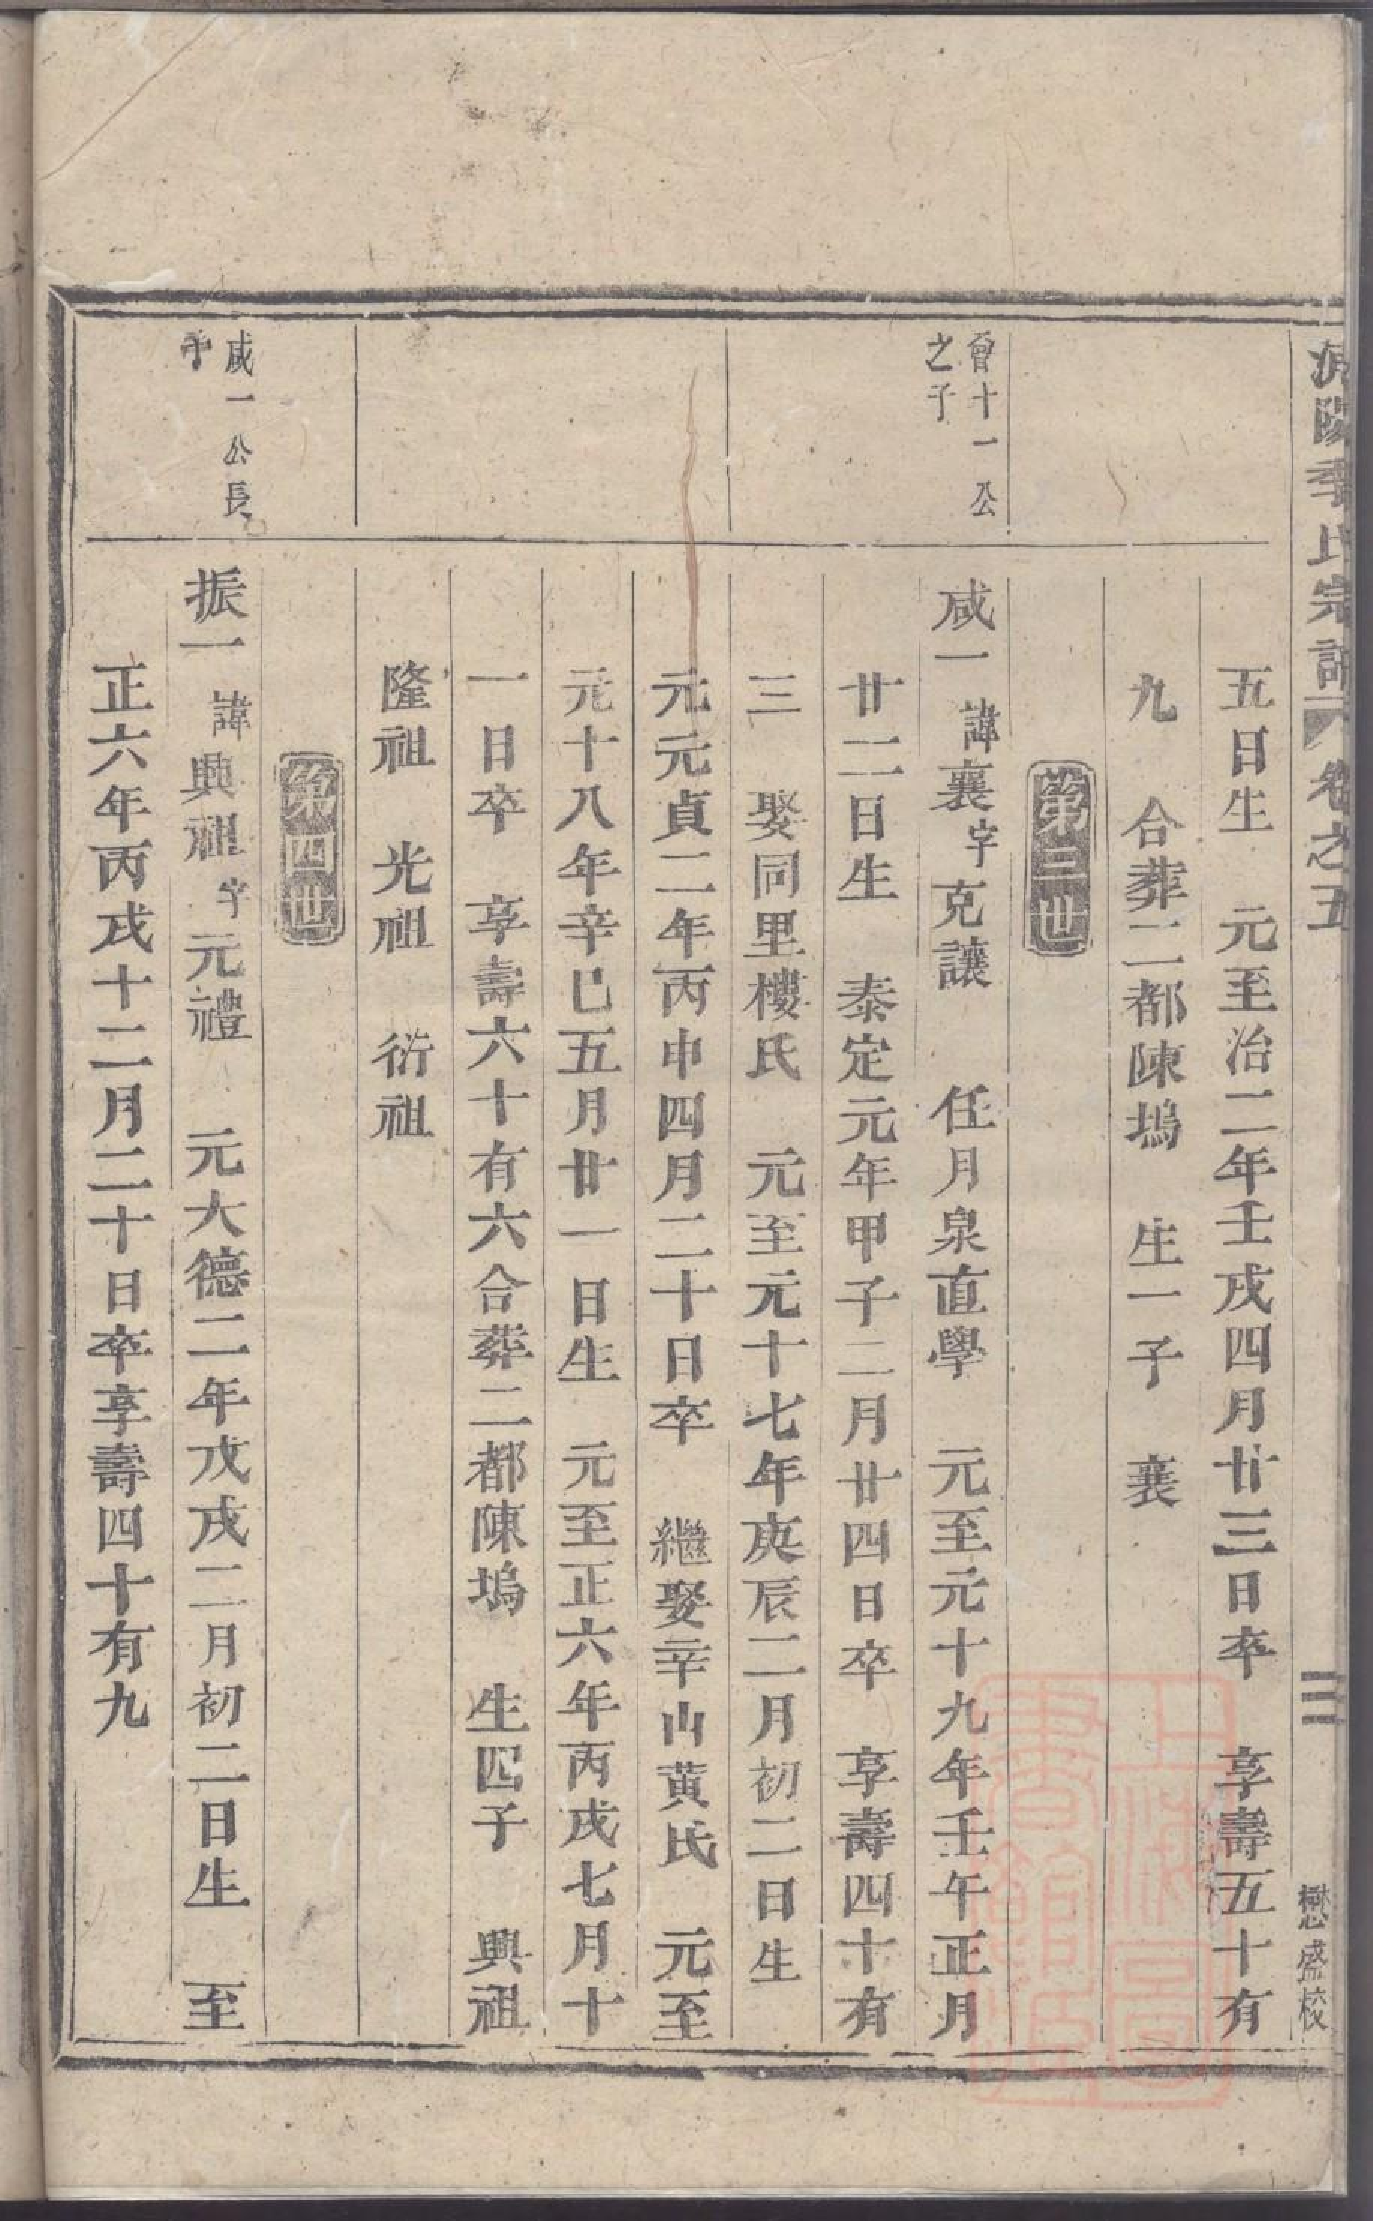 季氏宗譜 卷之五
三
懋盛校
五日生 元至治二年壬戌四月廿三日卒 享壽五十有
九 合葬二都陳塢 生一子 襄
第三世
曾十一公
之子
咸一諱襄字克讓 任月泉直學 元至元十九年壬午正月
廿二日生 泰定元年甲子二月廿四日卒 享壽四十有
三 娶同里樓氏 元至元十七年庚辰二月初二日生
元元貞二年丙申四月二十日卒 繼娶辛山黃氏 元至
元十八年辛巳五月廿一日生 元至正六年丙戌七月十
一日卒 享壽六十有六合葬二都陳塢 生四子 興祖
隆祖 光祖 衍祖
第四世
咸一公長
子
振一諱興祖字元禮 元大德二年戊戌二月初二日生 至
正六年丙戌十二月二十日卒享壽四十有九